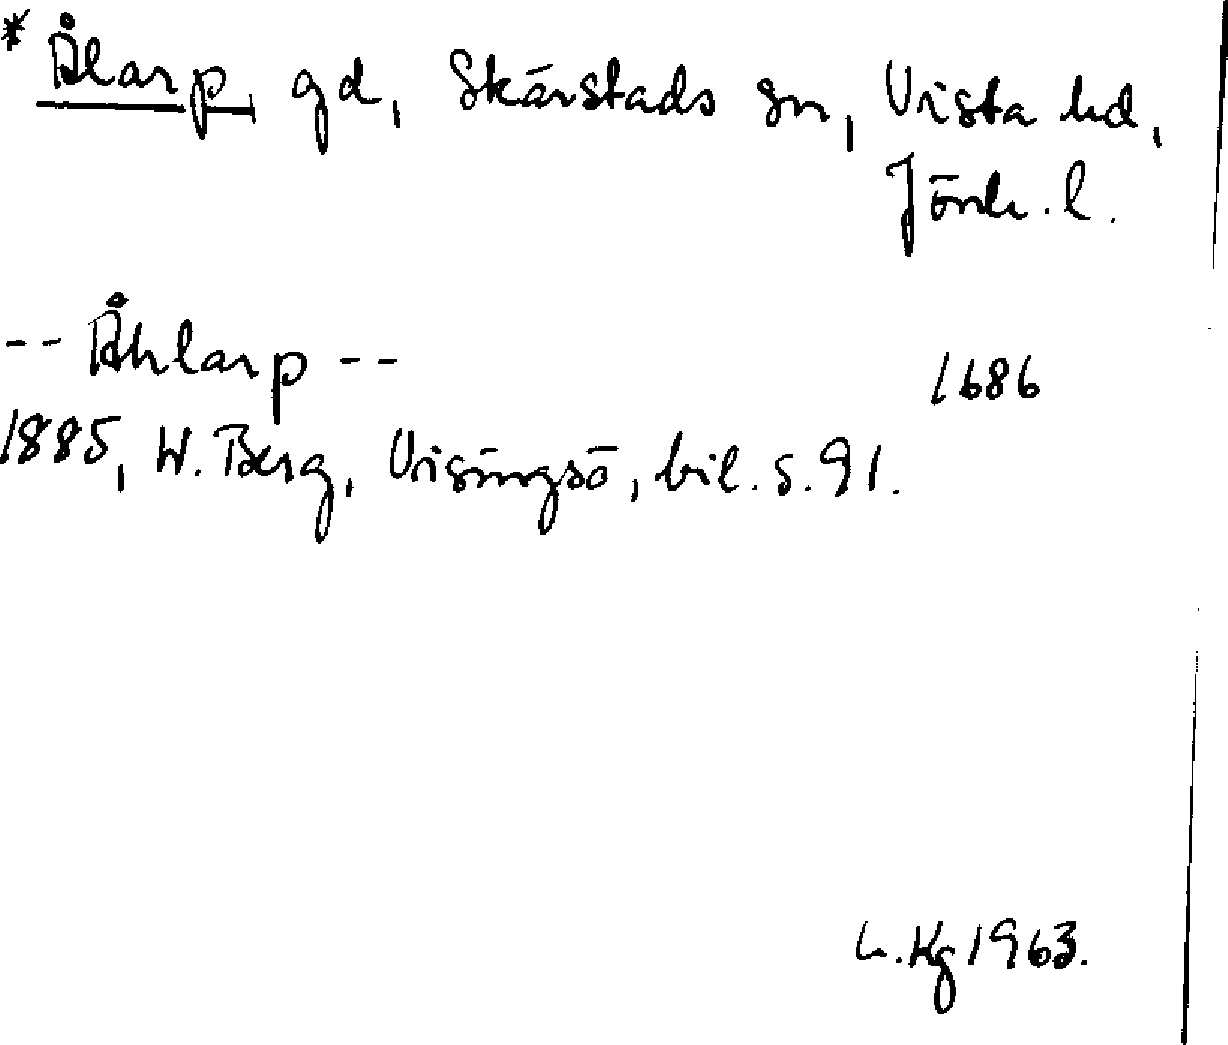 * Ålarp gd, Skärstads sn, Vista hd,
Jönk. l.
-- Åhlarp -- 1686
1885, W. Berg, Visingsö, bil. s. 91.
L. Hg 1963.